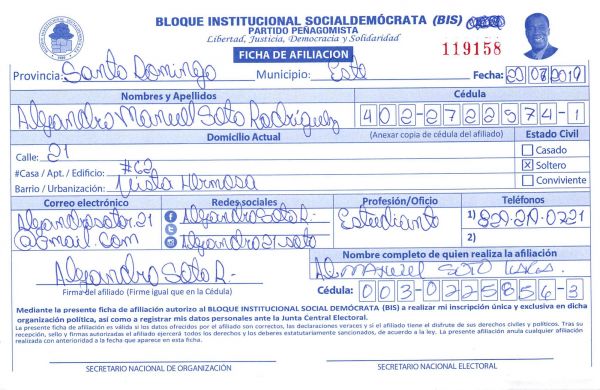 BLOQUE INSTITUCIONAL SOCIALDEMÓCRATA (BIS)
PARTIDO PEÑAGOMISTA
Libertad, Justicia, Democracia y Solidaridad
FICHA DE AFILIACION
119158
Provincia: Santo Domingo Municipio: Este Fecha:
Nombres y Apellidos Cédula
Alejandro Manuel Soto Rodríguez 402-2722574-1
Domicilio Actual (Anexar copia de cédula del afiliado) Estado Civil
Calle: 21 Casado
#Casa / Apt. / Edificio: #62 X Soltero
Barrio / Urbanización: Vista Hermosa Conviviente
Correo electrónico Redes sociales Profesión/Oficio Teléfonos
Alejandrosotor.21 Alejandro Soto R.- Estudiante 1)
@gmail.com Alejandro21-soto 2)
Nombre completo de quien realiza la afiliación
Alejandro Soto R.- MANUEL SOTO
Firma del afiliado (Firme igual que en la Cédula) Cédula: 003-0225856-3
Mediante la presente ficha de afiliación autorizo al BLOQUE INSTITUCIONAL SOCIALDEMÓCRATA (BIS) a realizar mi inscripción única y exclusiva en dicha
organización política, así como a registrar mis datos personales ante la Junta Central Electoral.
La presente ficha de afiliación es válida si los datos ofrecidos por el afiliado son correctos, las declaraciones veraces y si el afiliado tiene el disfrute de sus derechos civiles y políticos. Tras su
recepción, sello y firmas autorizadas el afiliado ejercerá todos los derechos y los deberes estatutariamente sancionados, de acuerdo a la ley. La presente afiliación anula cualquier afiliación
realizada con anterioridad a la fecha que aparece en esta ficha.
SECRETARIO NACIONAL DE ORGANIZACIÓN SECRETARIO NACIONAL ELECTORAL